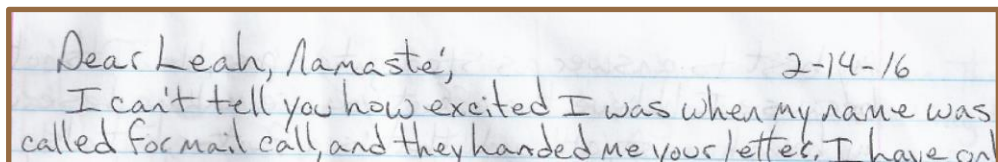 Dear Leah, Namaste',
2-14-16
I can't tell you how excited I was when my name was
called for mail call, and they handed me your letter. I have on